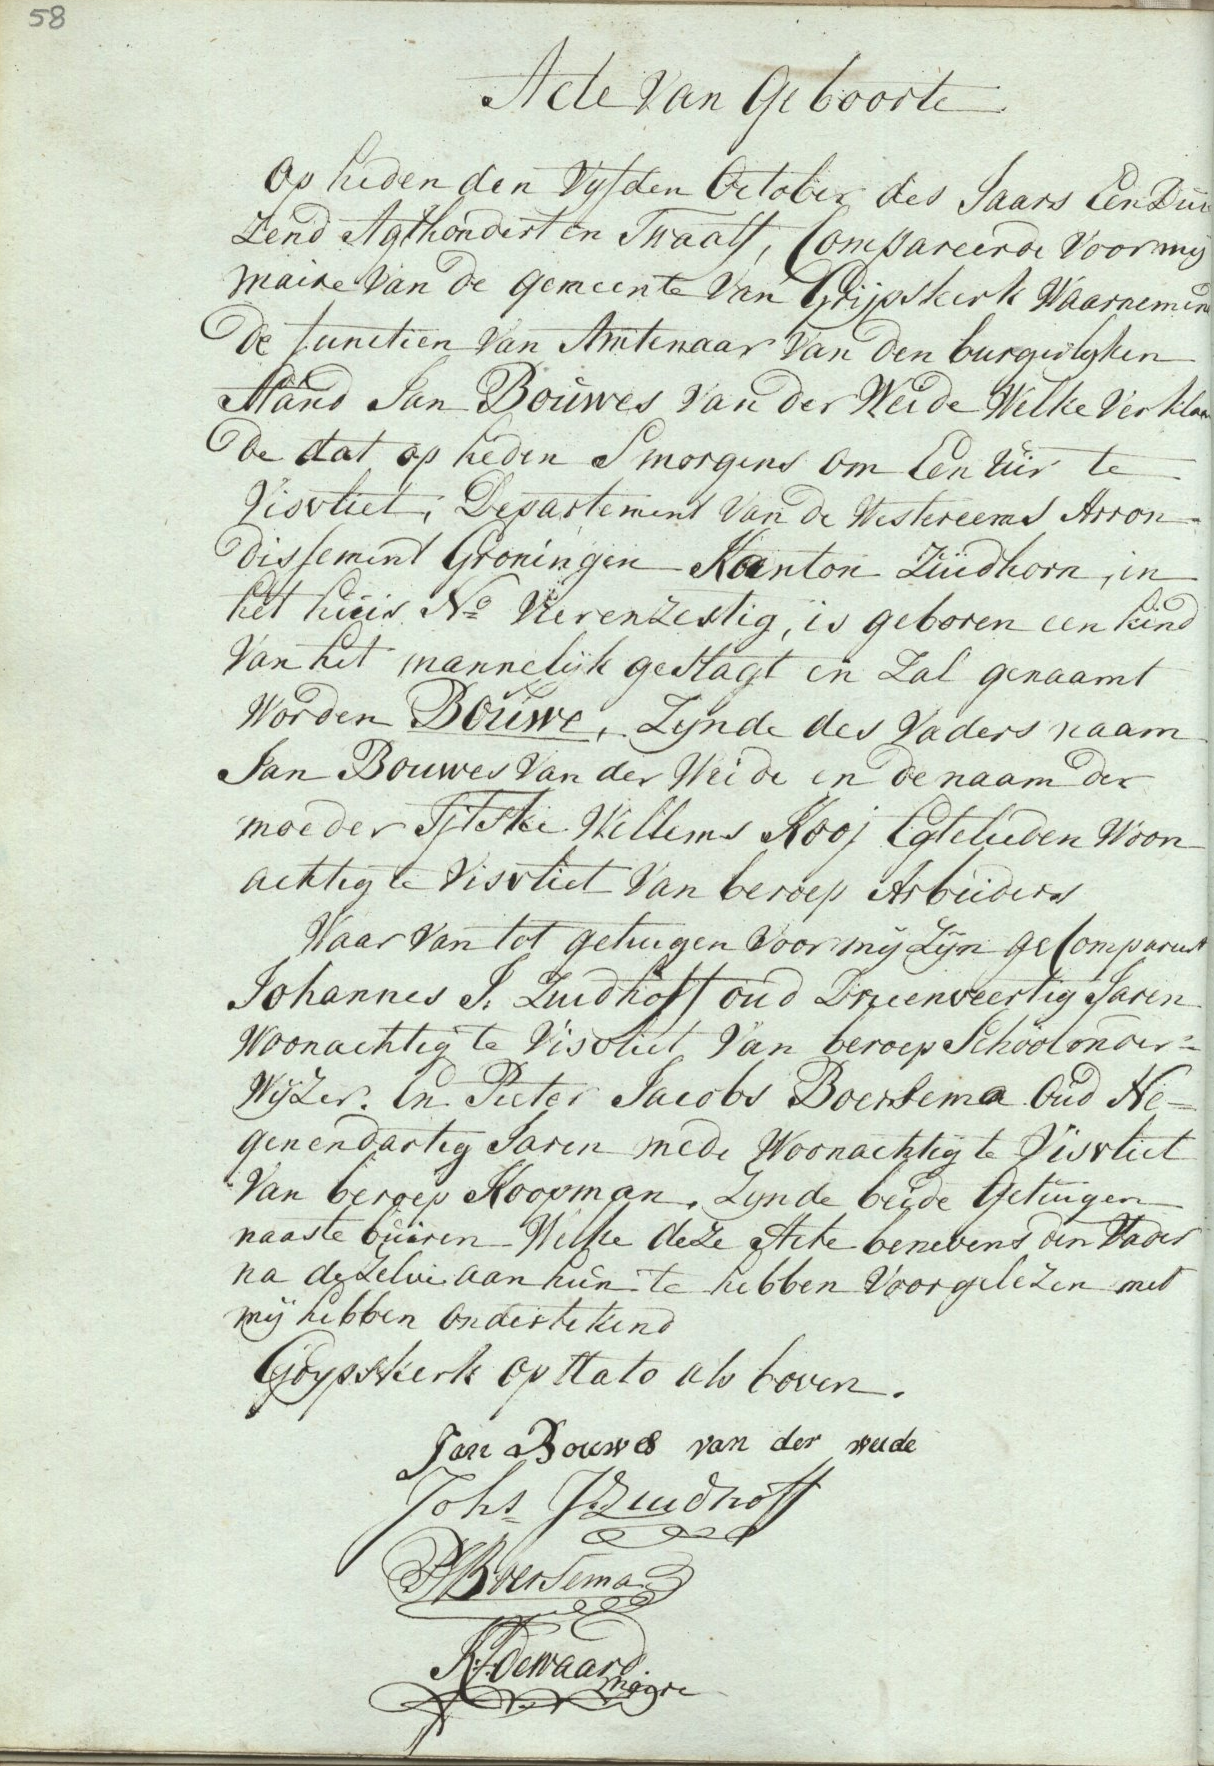 58
Acte Van Geboorte
Op heden den Vyfden October des Jaars EenDui
zend Agthondert en Twaalf, Compareerde Voor mij
maire Van de gemeente Van Grijpskerk Waarnemen
De functien Van Amtenaar Van den burgerlyken
Stand Jan Boúwes Van der Weide Welke Verklaar
De dat op heden Smorgens om Een úir te
Visvliet, Departement Van de Westereems Arron
dissement Groningen Kanton Zúidhorn, in
het húis No Vierenzestig, is geboren een kind
Van het mannelijk geslagt en Zal genaamt
Worden Boúwe, Zynde des Vaders naam
Jan Bouwes Van der Weide en de naam der
moeder Tjitske Willems Kooj Egtelieden Woon
achtig te Visvliet Van beroep Arbeiders
Waar van tot getuigen voor mij Zijn geCompareert
Johannes J. Zuidhoff oud Drieenveertig Jaren
Woonachtig te Visvliet Van beroep Schoolonder=
Wijzer. En Pieter Jacobs Boersema Oud Ne=
genendartig Jaren mede Woonachtig te Visvliet
Van beroep Koopman. Zynde beide Getuigen
naaste búiren Welke deze Acte benevens den Vader
na dezelve aan hún te hebben Voorgelezen met
mij hebben ondertekend
Grypskerk op Dato als boven.
Jan Bouwes van der weide
Johs J. Zuidhoff
PJBoersema
K. J. de waard
maire